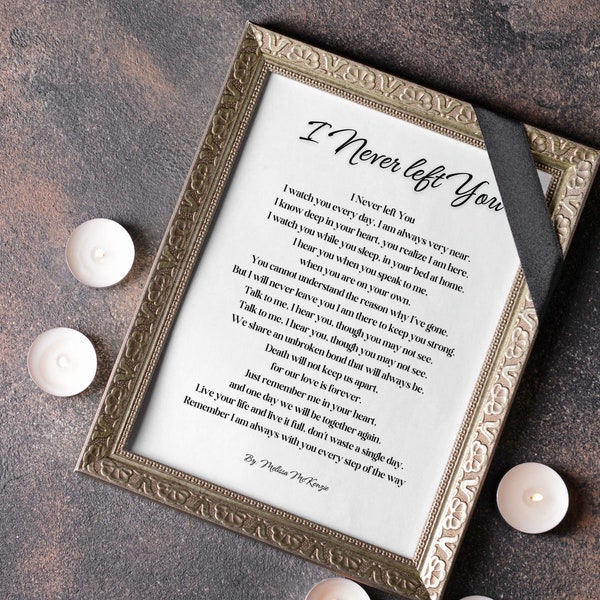 I Never left You
I Never left You
I watch you every day, I am always very near.
I know deep in your heart, you realize I am here.
I watch you while you sleep, in your bed at home.
I hear you when you speak to me,
when you are on your own.
You cannot understand the reason why I've gone,
But I will never leave you I am there to keep you strong.
Talk to me, I hear you, though you may not see.
Talk to me, I hear you, though you may not see.
We share an unbroken bond that will always be.
Death will not keep us apart,
for our love is forever.
Just remember me in your heart,
and one day we will be together again.
Live your life and live it full, don't waste a single day.
Remember I am always with you every step of the way
By Melisa McKenzie